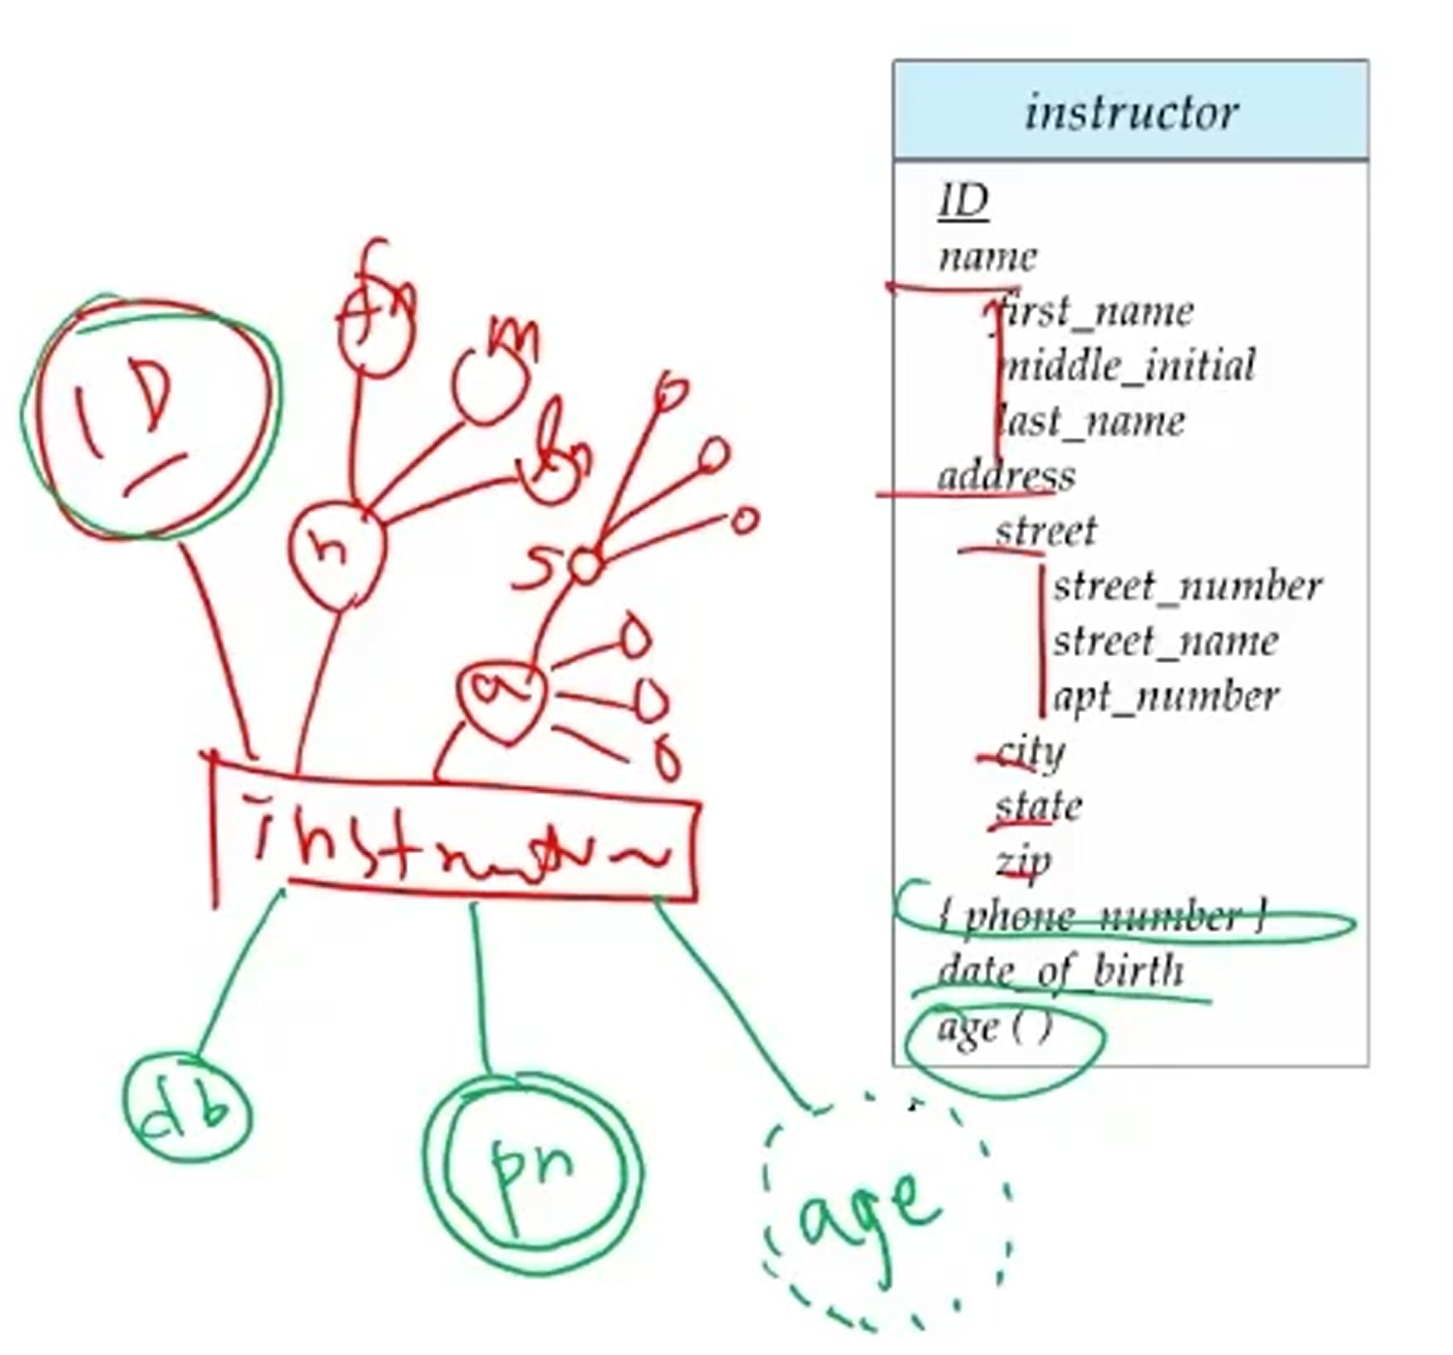 instructor
ID
name
first_name
middle_initial
last_name
address
street
street_number
street_name
apt_number
city
state
zip
{ phone_number }
date_of_birth
age ( )
ID
fn
m
ln
n
s
a
db
pn
age